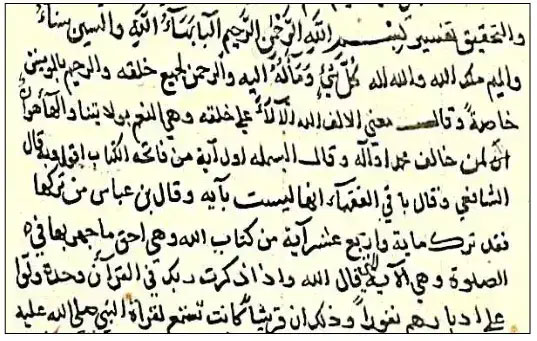 والتحقيق تفسير بسم الله الرحمن الرحيم الباء بهاء الله والسين سناء
والميم ملك الله والله اله كل شيء ومآله اليه والرحمن لجميع خلقه والرحيم بالمومنين
خاصة وقال معنى الالف الله آلاء على خلقه وهي النعم بولايتنا والهاء هوان
لمن خالف محمدا وآله وقال البسمله اول آية من فاتحه الكتاب وبه قال
الشافعي وقال باقي الفقهاء انها ليست بآيه وقال بن عباس من تركها
فقد ترك ماية واربع عشر آية من كتاب الله وهي احق ما جهر بها في
الصلوة وهي الآية التي قال الله واذا ذكرت ربك في القرآن وحده ولوا
على ادبارهم نفورا وذلك ان قريشا كانت تستمع لقراة النبي صلى الله عليه